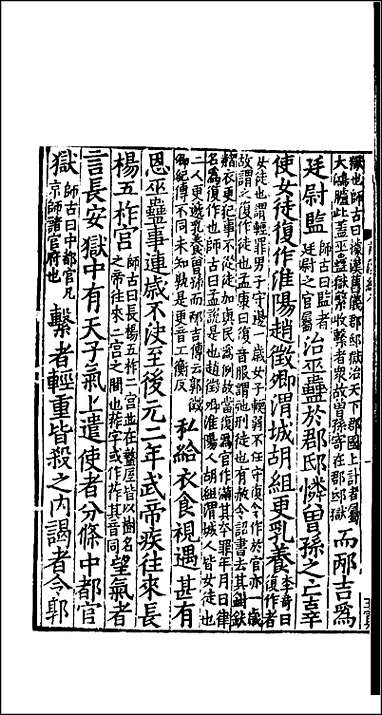 獄也師古曰據漢舊儀郡邸獄治天下郡國上計者屬
大鴻臚此蓋巫蠱獄繫收繫者衆故曾孫寄在郡邸獄
而邴吉爲
廷尉監
師古曰監者
廷尉之官屬
治巫蠱於郡邸憐曾孫之亡辜
使女徒復作淮陽趙徵卿渭城胡組更乳養
李奇曰
復作者
女徒也謂輕罪男子守邊一歲女子輭弱不任守復令作於官亦一歲
故謂之復作徒也孟康曰復音服謂弛刑徒也有赦令詔書去其鉗釱
赭衣更犯事不從徒加與民爲例故當復爲官作滿其本罪年月日律
名爲復作也師古曰孟說是也趙徵卿淮陽人胡組渭城人皆女徒也
二人更遞乳養曾孫而邴吉傳云郭徵
卿紀傳不同未知孰是更音工衡反
私給衣食視遇甚有
恩巫蠱事連歲不決至後元二年武帝疾往來長
楊五柞宮
師古曰長楊五柞二宮並在盩厔皆以樹名
之帝往來二宮之間也柞字或作祚其音同
望氣者
言長安獄中有天子氣上遣使者分條中都官
獄
師古曰中都官凡
京師諸官府也
繫者輕重皆殺之內謁者令郭